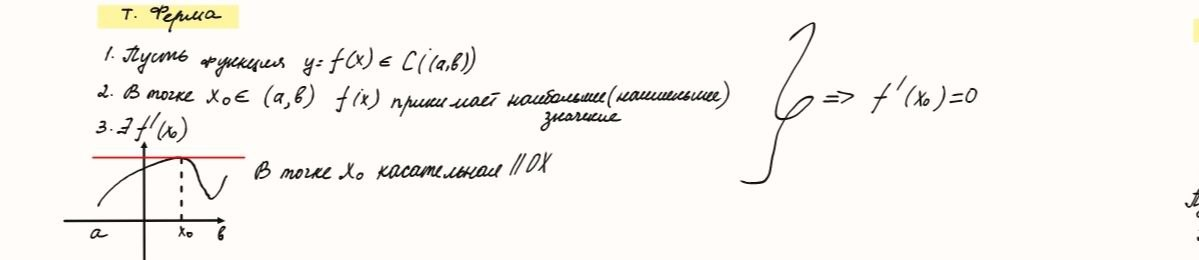 т. Ферма
1. Пусть функция y = f(x) ∈ C((a,b))
2. В точке x₀ ∈ (a,b) f(x) принимает наибольшее (наименьшее)
значение
=> f'(x₀)=0
3. ∃ f'(x₀)
В точке x₀ касательная || OX
a x₀ b